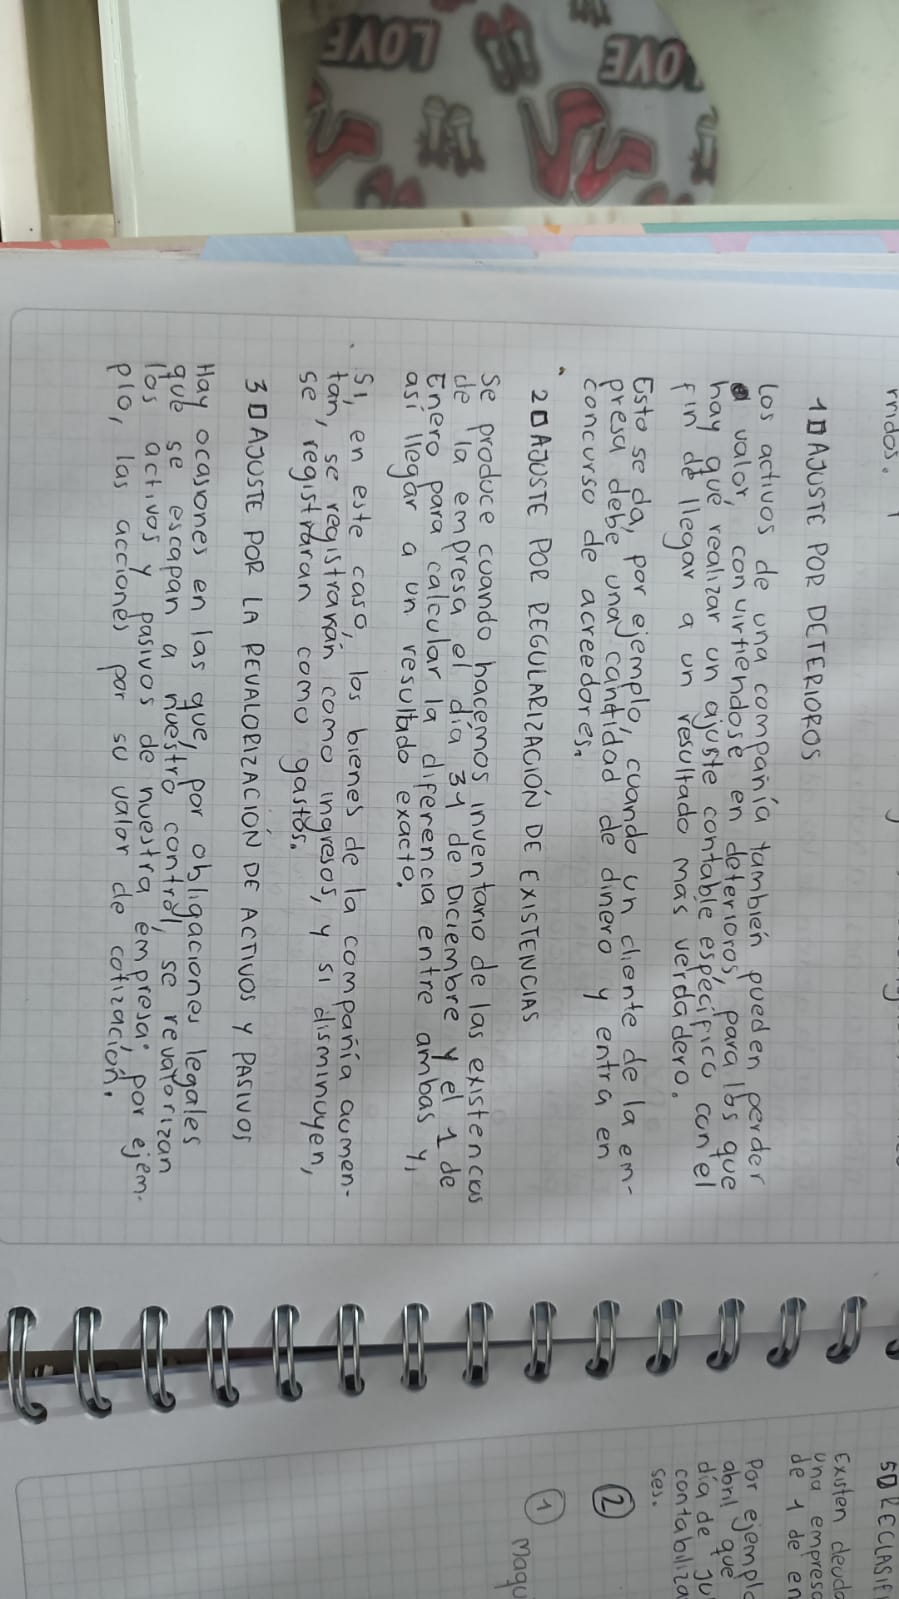 LOVE
LOVE
midos.
1 AJUSTE POR DETERIOROS
Los activos de una compañía también pueden perder
valor, convirtiendose en deterioros, para los que
hay que realizar un ajuste contable específico con el
fin de llegar a un resultado más verdadero.
Esto se da, por ejemplo, cuando un cliente de la em-
presa debe una cantidad de dinero y entra en
concurso de acreedores.
2 AJUSTE POR REGULARIZACIÓN DE EXISTENCIAS
Se produce cuando hacemos inventario de las existencias
de la empresa el día 31 de Diciembre y el 1 de
Enero para calcular la diferencia entre ambas y,
así llegar a un resultado exacto.
. Si, en este caso, los bienes de la compañía aumen-
tan, se registrarán como ingresos, y si disminuyen,
se registraran como gastos.
3 AJUSTE POR LA REVALORIZACIÓN DE ACTIVOS Y PASIVOS
Hay ocasiones en las que, por obligaciones legales
que se escapan a nuestro control, se revalorizan
los activos y pasivos de nuestra empresa: por ejem-
plo, las acciones por su valor de cotización.
5 RECLASIFI
Existen deuda
una empresa
de 1 de en
Por ejemplo
abril que
día de ju
contabiliza
ses.
2
1 Maqu